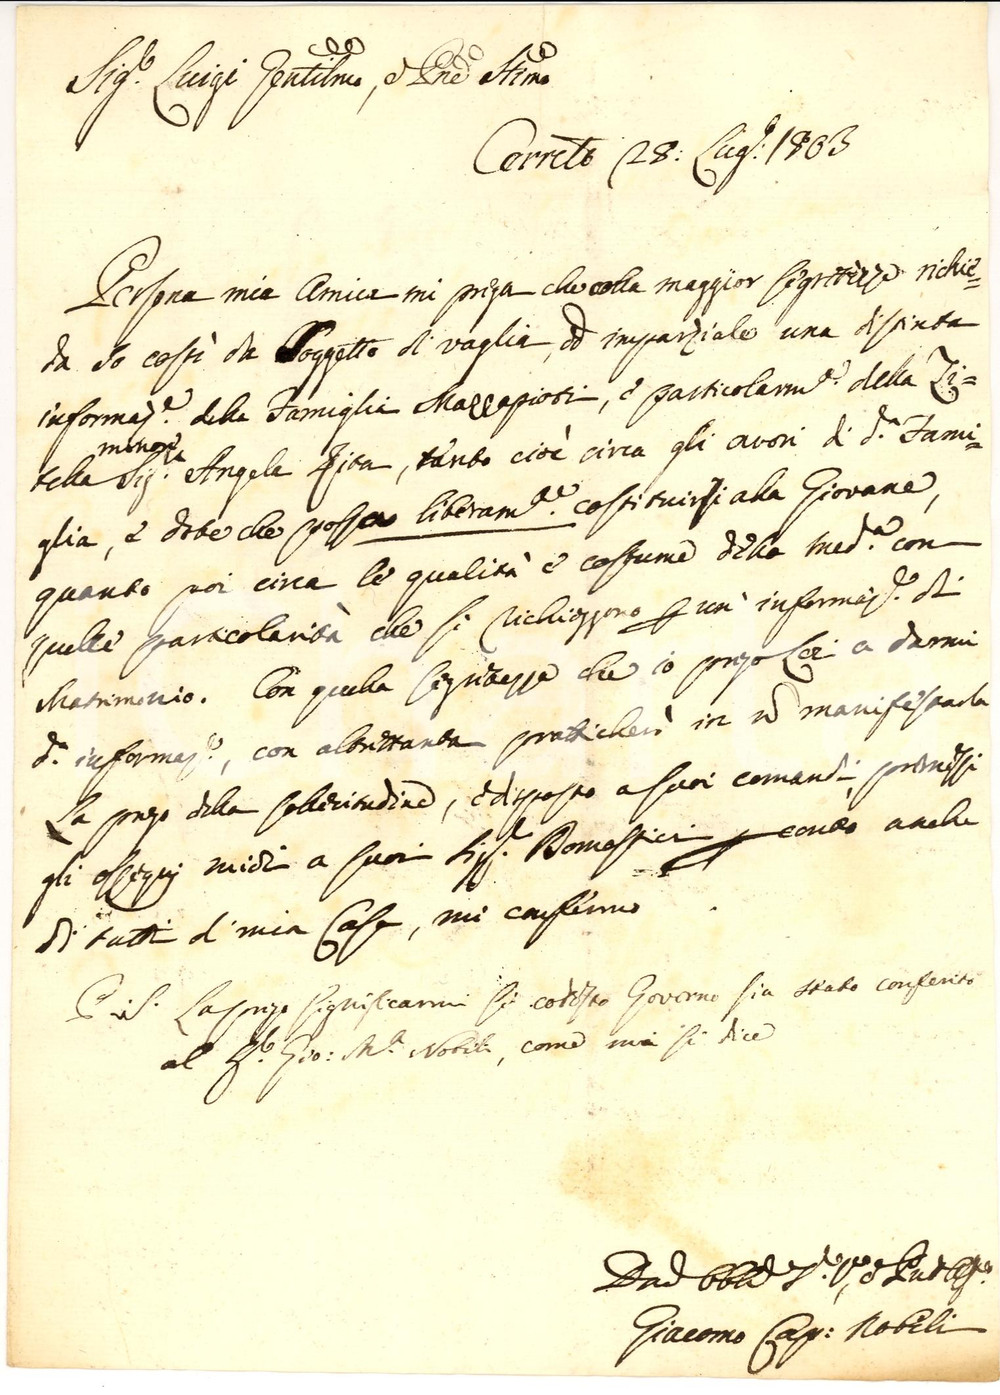 Sig.e Luigi Gentilmo, e Pne Stimo
Correto 28: Lug.o 1803
Persona mia Amica mi prega che colla maggior segretezza richie=
da Io costì da Soggetto di vaglia, ed imparziale una distinta
informaz.e della Famiglia Mazzapioti, e particolarm.e della Zi=
minore
tella Sig.a Angela Zita, tanto cioè circa gli averi di d.a Fami=
glia, e dote che possa liberam.e costituirsi alla Giovane,
quanto poi circa le qualità e costume della med.a con
quelle particolarità che si richieggono p un' informaz.e di
Matrimonio. Con quella segretezza che io prego Lei a darmi
d.a informaz.e, con altrettanta pratticherò in n manifestarla
La prego della sollecitudine, e disposto a suoi comandi, premessi
gli ossequj miei a suoi Sig.i Domestici p conto anche
di tutti di mia Casa, mi confermo
P.S. La prego significarmi se cotesto Governo sia stato conferito
al S.e Gio: M.a Nobili, come mi si dice
Giacomo Cap: Nobili